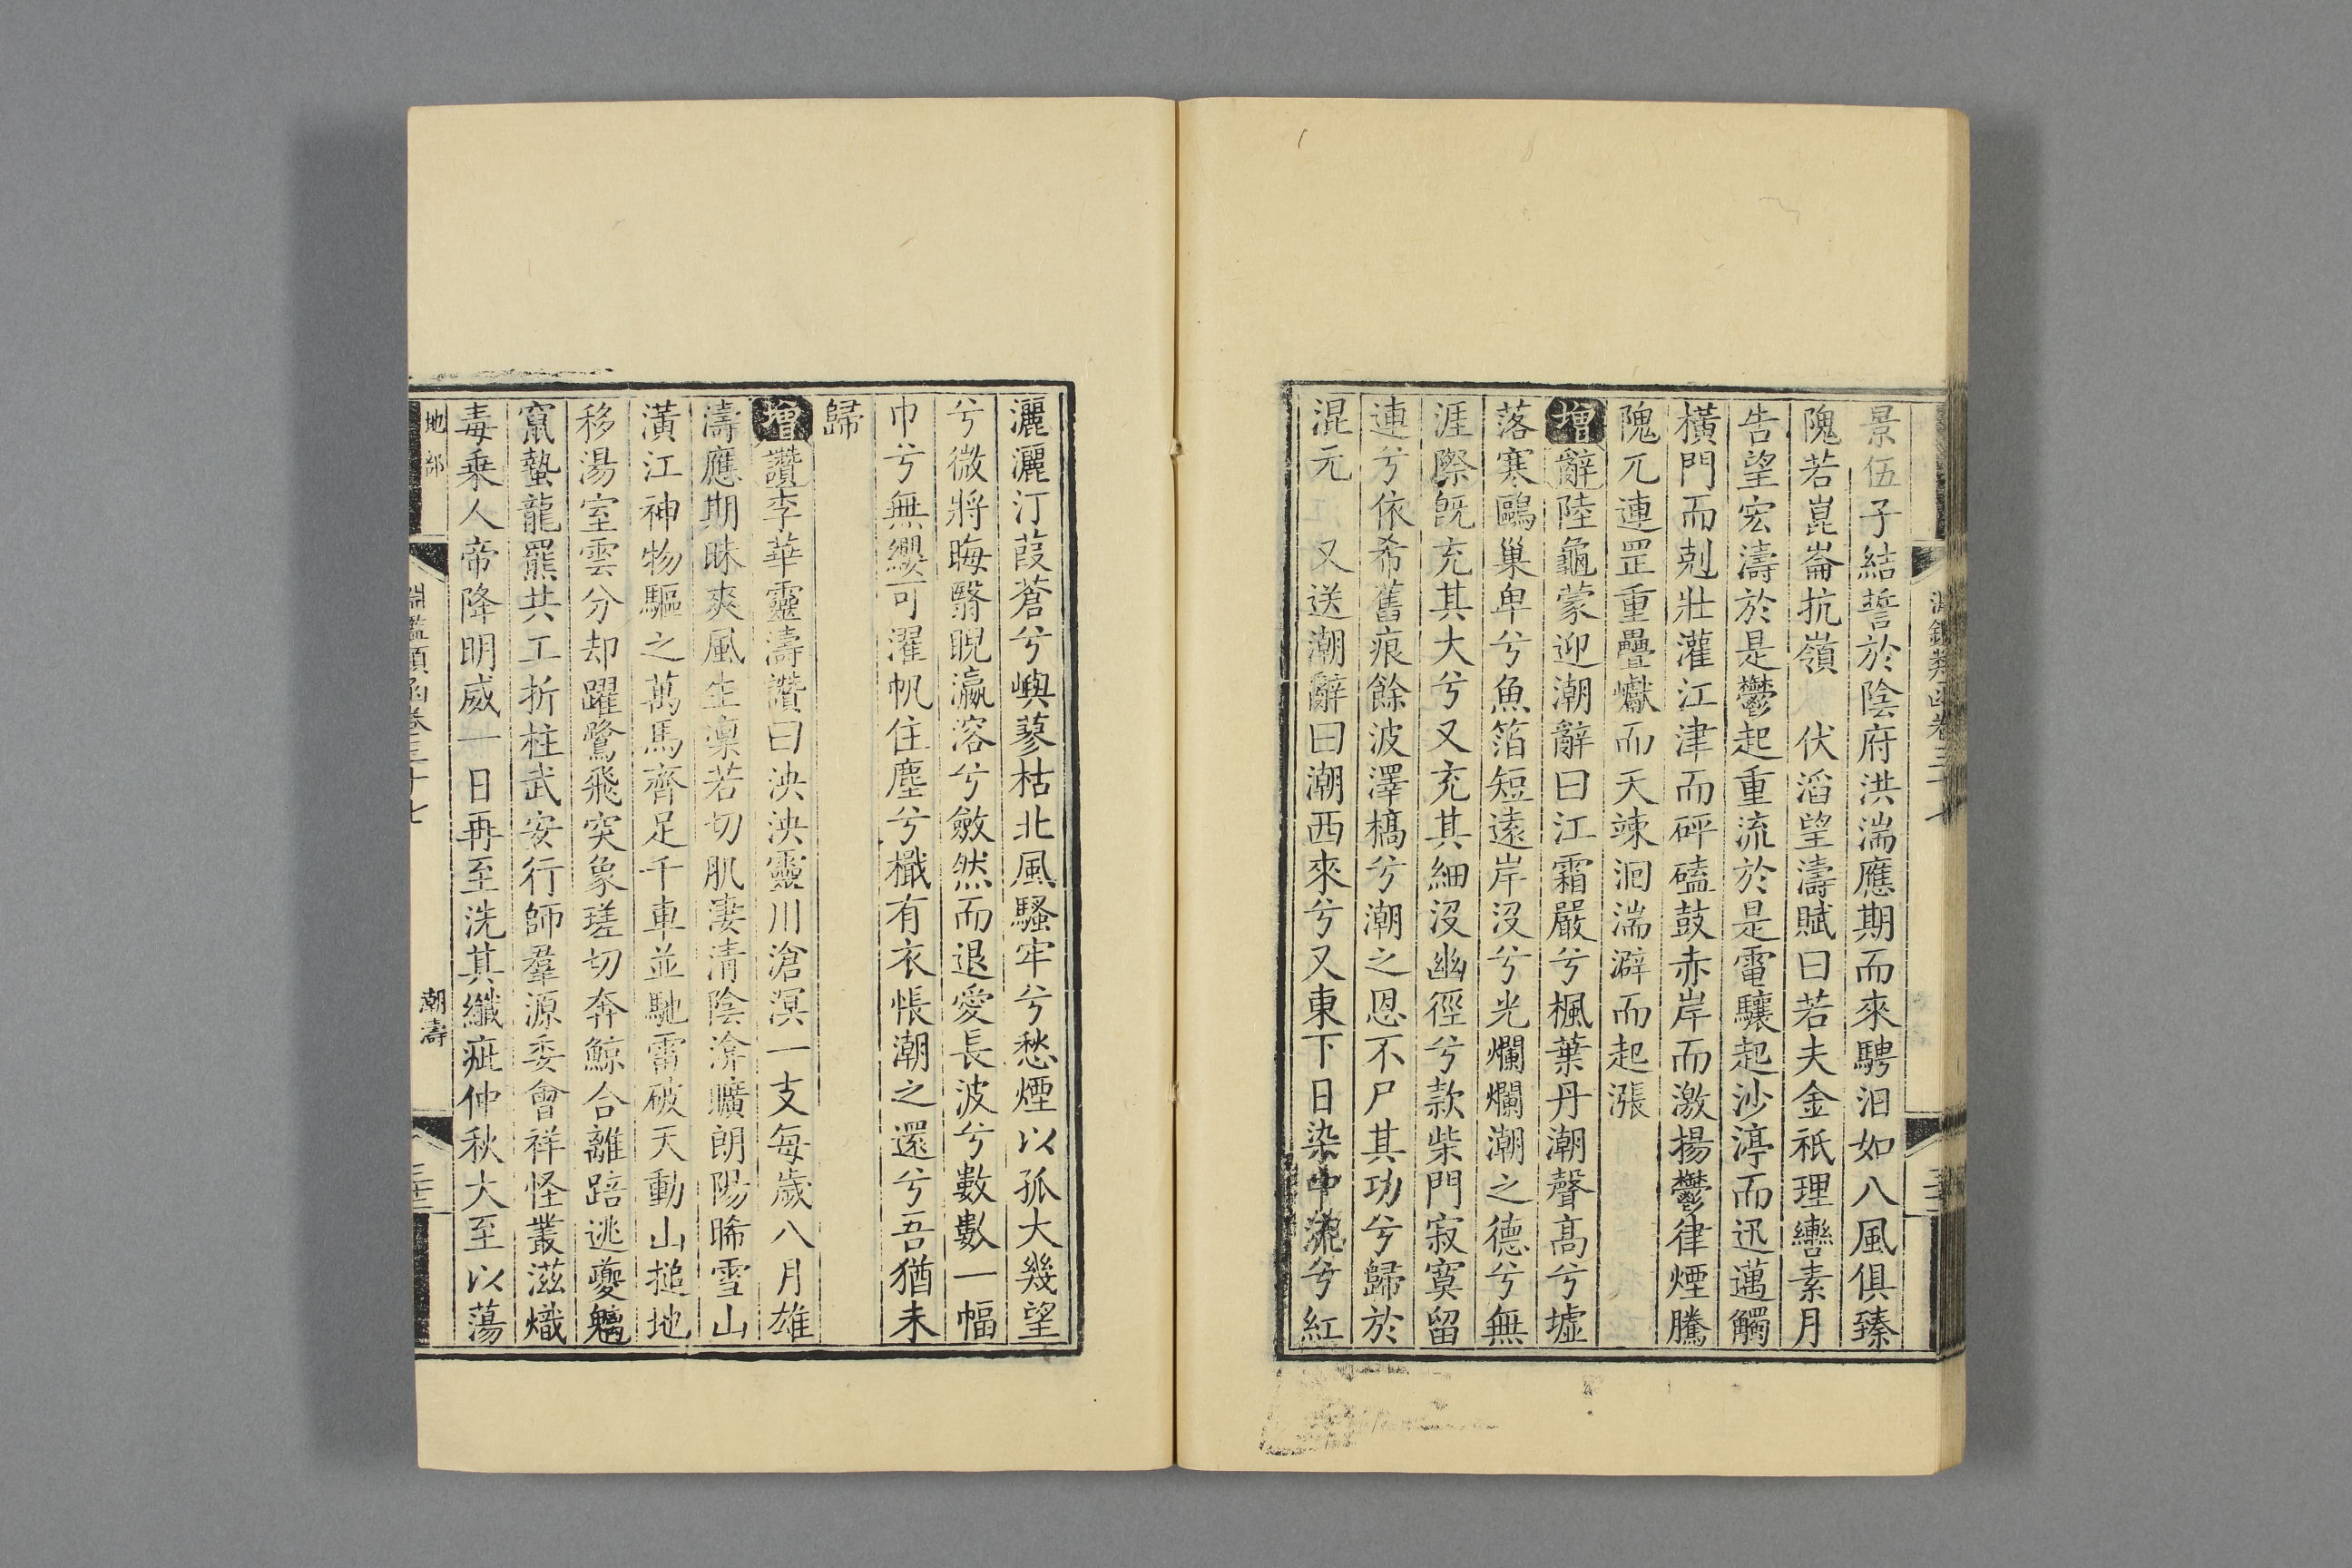 景伍子結誓於陰府洪湍應期而來騁汨如八風俱臻
隗若崑崙抗嶺　伏滔望濤賦曰若夫金祇理轡素月
告望宏濤於是鬱起重流於是電驤起沙渟而迅邁觸
橫門而剋壯灌江津而砰磕鼓赤岸而激揚鬱律煙騰
隗兀連罡重疊巘而天竦洄湍澼而起漲
增辭陸龜蒙迎潮辭曰江霜嚴兮楓葉丹潮聲高兮墟
落寒鷗巢卑兮魚箔短遠岸沒兮光爛爛潮之德兮無
涯際既充其大兮又充其細沒幽徑兮款柴門寂寞留
連兮依希舊痕餘波澤槁兮潮之恩不尸其功兮歸於
混元　又送潮辭曰潮西來兮又東下日染中流兮紅
灑灑汀葭蒼兮嶼蓼枯北風騷牢兮愁煙以孤大幾望
兮微將晦翳睨瀛溶兮斂然而退愛長波兮數數一幅
巾兮無纓可濯帆住塵兮檝有衣悵潮之還兮吾猶未
歸
增讚李華靈濤讚曰泱泱靈川滄溟一支每歲八月雄
濤應期昧爽風生凜若切肌淒清陰渰曠朗陽晞雪山
潢江神物驅之萬馬齊足千車並馳雷破天動山搥地
移湯室雲分却躍鷺飛突象瑳切奔鯨合離踣逃夔魑
竄蟄龍羆共工折柱武安行師羣源委會祥怪叢滋熾
毒乘人帝降明威一日再至洗其纖疵仲秋大至以蕩
地部
淵鑑類函卷三十七
潮濤